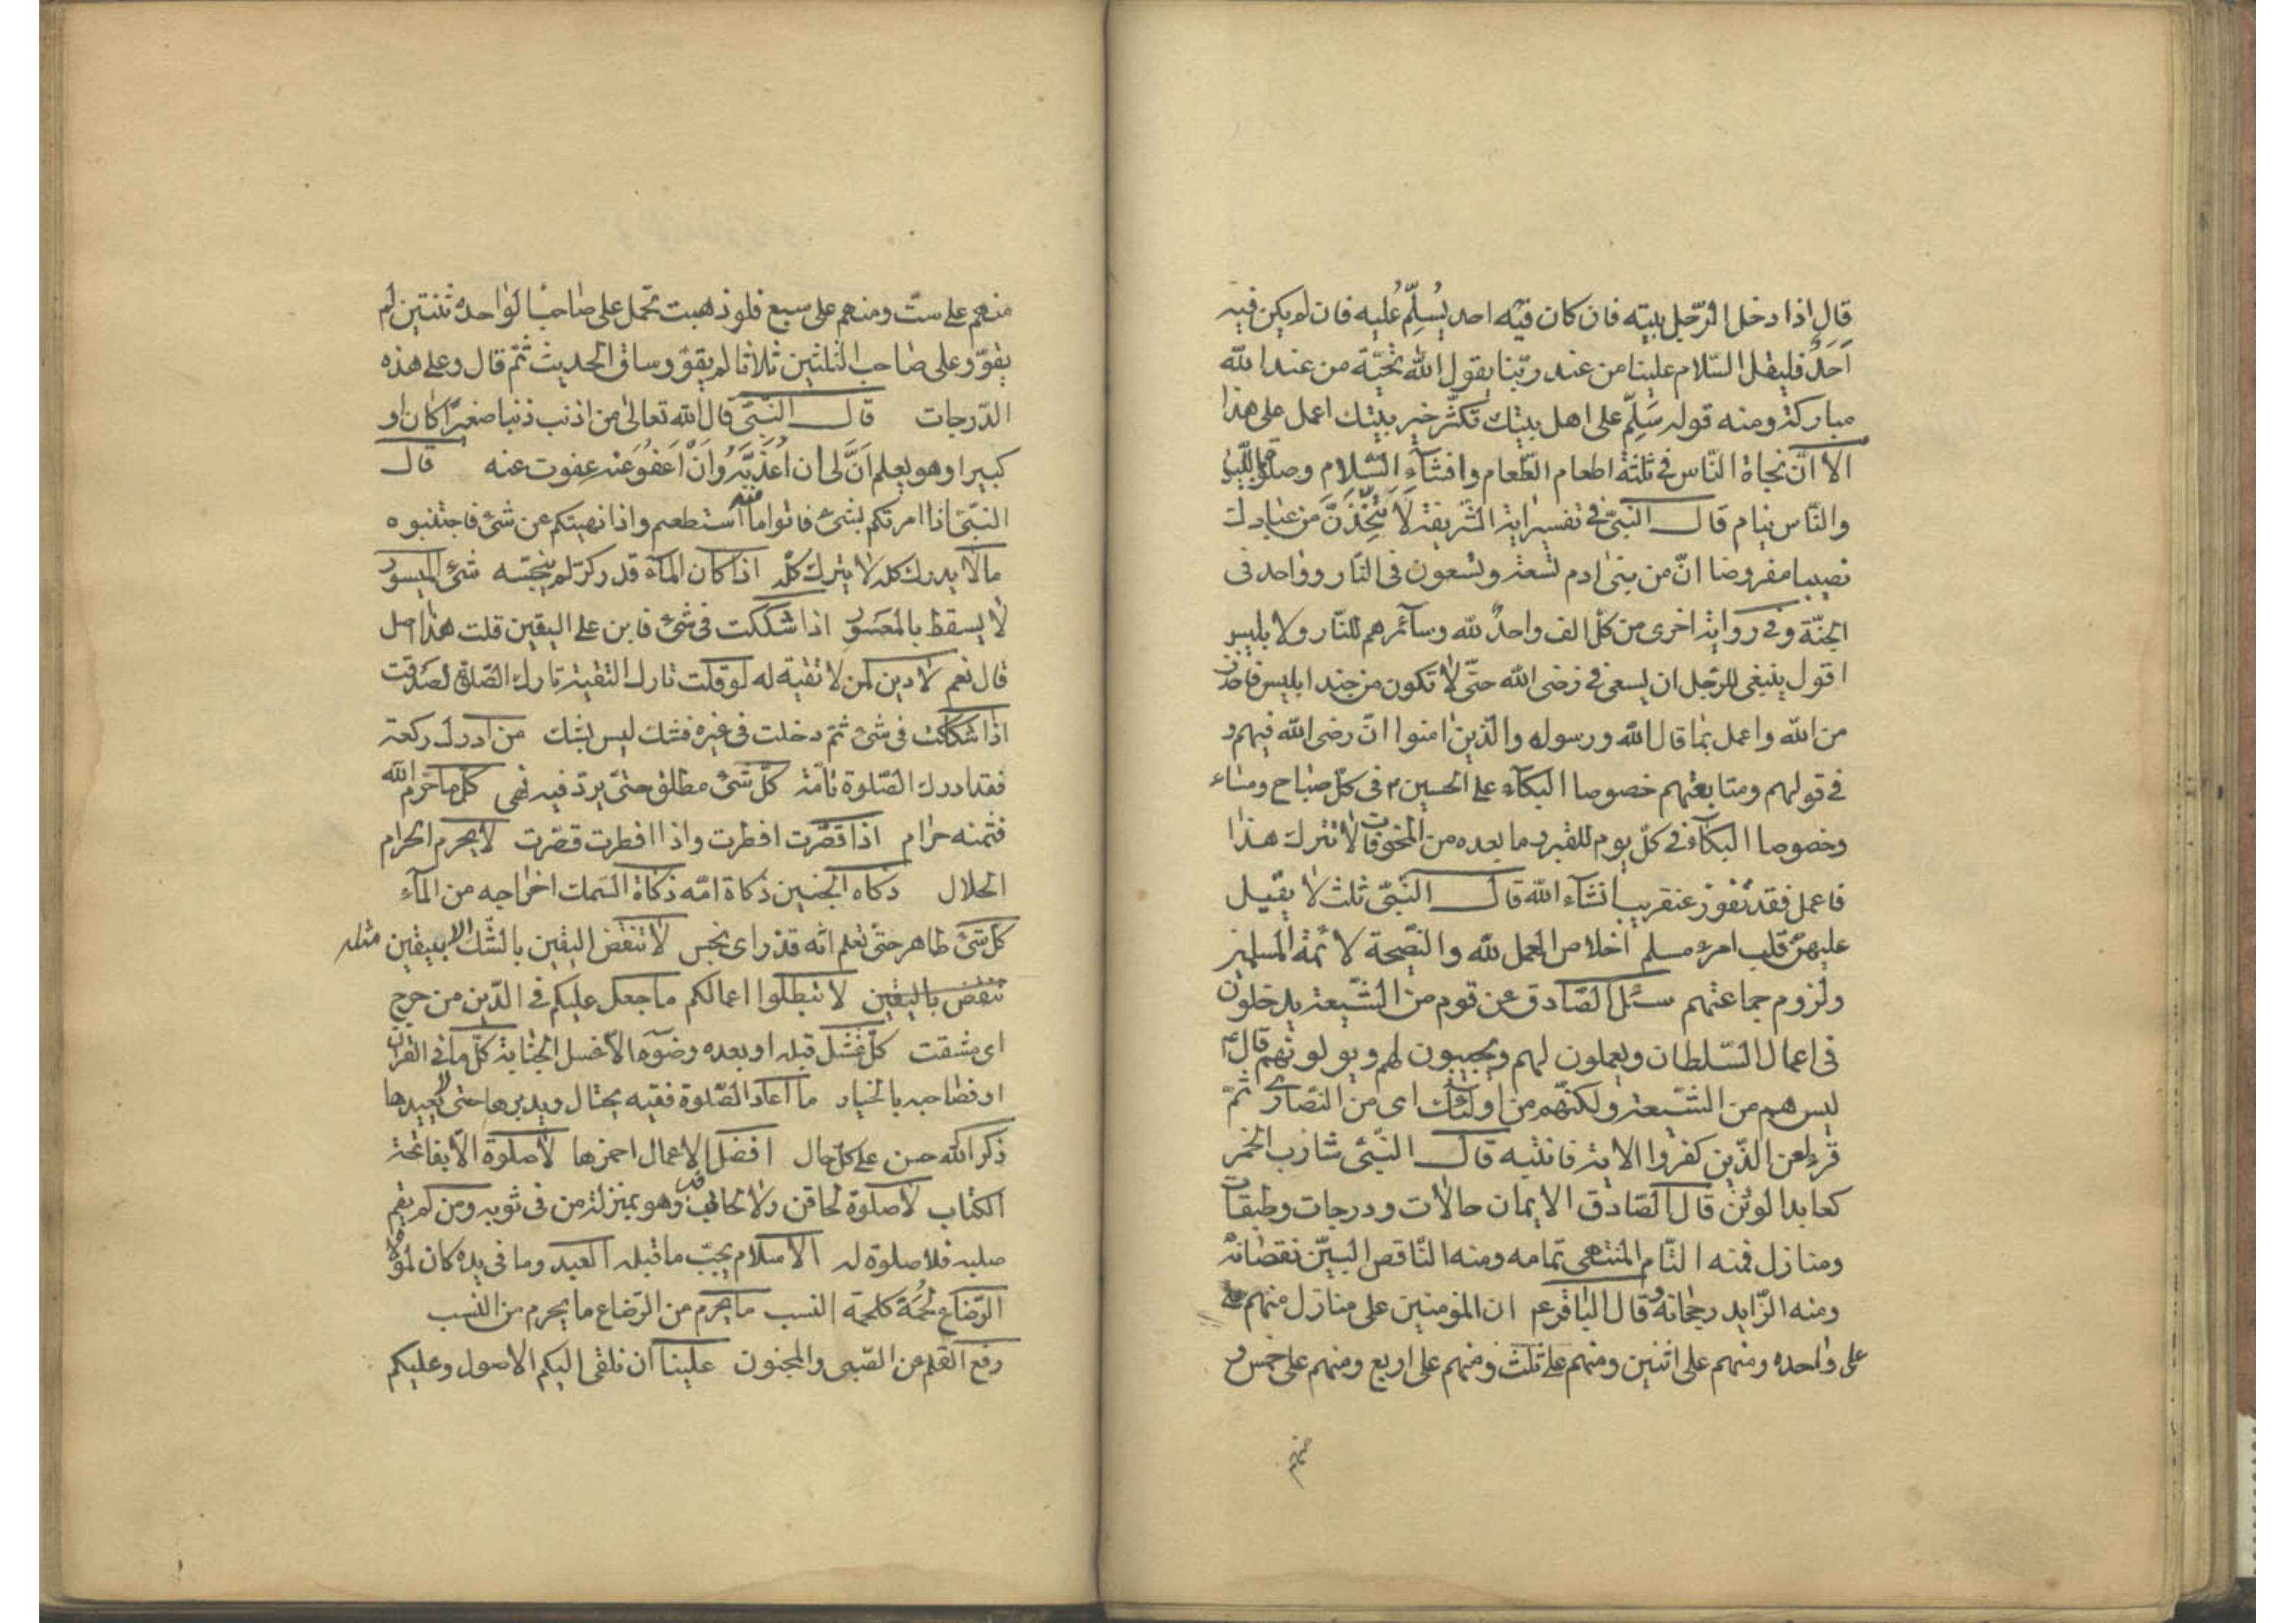 قال اذا دخل الرّجل بيته فان كان فيه احد يُسلِّمُ عليه فان لم يكن فيه
اَحَدٌ فليقل السّلام علينا من عند ربّنا يقول اللّه تحيّة من عند اللّه
مباركة ومنه قوله سَلِّم على اهل بيتك تكثّر خير بيتك اعمل على هذا
الا انّ نجاة النّاس فى ثلثة اطعام الطّعام وافشآء السّلام وصلوة اللّيل
والنّاس نيام قال النبىّ فى تفسير اية الشّريفة لَاَتَّخِذَنَّ من عبادك
نصيبا مفروضا انّ من بنى ادم تسعة وتسعون فى النّار وواحد فى
الجنّة وفى رواية اخرى من كلّ الف واحدٌ للّه وسآئرهم للنّار ولابليس
اقول ينبغى للرّجل ان يسعى فى رضى اللّه حتّى لا تكون من جند ابليس فاحذر
من اللّه واعمل بما قال اللّه ورسوله والّذين امنوا انّ رضى اللّه فيهم و
فى قولهم ومتابعتهم خصوصا البكآء على الحسين ع فى كلّ صباح ومساء
وخصوصا البكآء فى كلّ يوم للقبر وما بعده من المخوفات لا تترك هذا
فاعمل فقد تفوز عنقريب انشآء اللّه قال النّبىّ ثلث لا يقيل
عليهنّ قلب امرء مسلم اخلاص العمل للّه والنّصيحة لائمّة المسلمين
ولزوم جماعتهم سئل الصّادق عن قوم من الشّيعة يدخلون
فى اعمال السّلطان ويعملون لهم ويجيبون لهم ويولونهم قال ع
ليس هم من الشّيعة ولكنّهم من اولئك اى من النّصارى ثمّ
قرء لعن الّذين كفروا الاية فانتبه قال النّبىّ شارب الخمر
كعابد الوثن قال الصّادق الايمان حالات ودرجات وطبقات
ومنازل فمنه التّام المنتهى تمامه ومنه النّاقص البيّن نقصانه
ومنه الزّايد رجحانه وقال الباقر ع ان المؤمنين على منازل منهم
على واحده ومنهم على اثنين ومنهم على ثلث ومنهم على اربع ومنهم على خمس و
منهم
منهم على ستّ ومنهم على سبع فلو ذهبت تحمل على صاحب الواحدة ثنتين لم
يقوّ وعلى صاحب الثلثين ثلاثا لم يقوّ وساق الحديث ثمّ قال وعلى هذه
الدّرجات قال النّبىّ قال اللّه تعالى من اذنب ذنبا صغيرًا كان او
كبيرا وهو يعلم اَنَّ لى ان اُعَذّبَهُ وَاَنْ اَعفُوَ عنه عفوت عنه قال
النبىّ اذا امرتكم بشئ فاتوا منه ما استطعم واذا نهيتكم عن شئ فاجتنبوه
ما لا يدرك كله لا يترك كلّه اذا كان المآء قدر كرّ لم ينجّسه شئ الميسور
لا يسقط بالمعسور اذا شككت فى شئ فابن على اليقين قلت هذا اصل
قال نعم لا دين لمن لا تقية له لو قلت تارك التقية تارك الصّلوة لصدقت
اذا شككت فى شئ ثمّ دخلت فى غيره فشك ليس بشك من ادرك ركعة
فقد ادرك الصّلوة تامّة كلّ شئ مطلق حتّى يرد فيه نهى كلّ ما حرّم اللّه
فثمنه حرام اذا قصّرت افطرت واذا افطرت قصّرت لا يحرم الحرام
الحلال ذكاه الجنين ذكاة امّه ذكاة السمك اخراجه من المآء
كلّ شئ طاهر حتّى تعلم انّه قذر اى نجس لا تنقض اليقين بالشّك الا بيقين مثله
تنقض باليقين لا تبطلوا اعمالكم ما جعل عليكم فى الدّين من حرج
اى مشقت كلّ غسل قبله او بعده وضوء الا غسل الجنابة كلّ ما فى القران
او فصاحبه بالخيار ما اعاد الصّلوة فقيه يحتال ويدبرها حتى لا يعيدها
ذكر اللّه حسن على كلّ حال افضل الاعمال احمزها لا صلوة الّا بفاتحة
الكتاب لا صلوة لحاقن ولا لحاقب وهو بمنزلة من فى ثوبه ومن لم يقم
صلبه فلا صلوة له الاسلام يجبّ ما قبله العبد وما فى يده كان لمولاه
الرّضاع لُحمَة كلحمة النسب ما يحرم من الرّضاع ما يحرم من النسب
رفع القلم عن الصّبى والمجنون علينا ان نلقى اليكم الاصول وعليكم